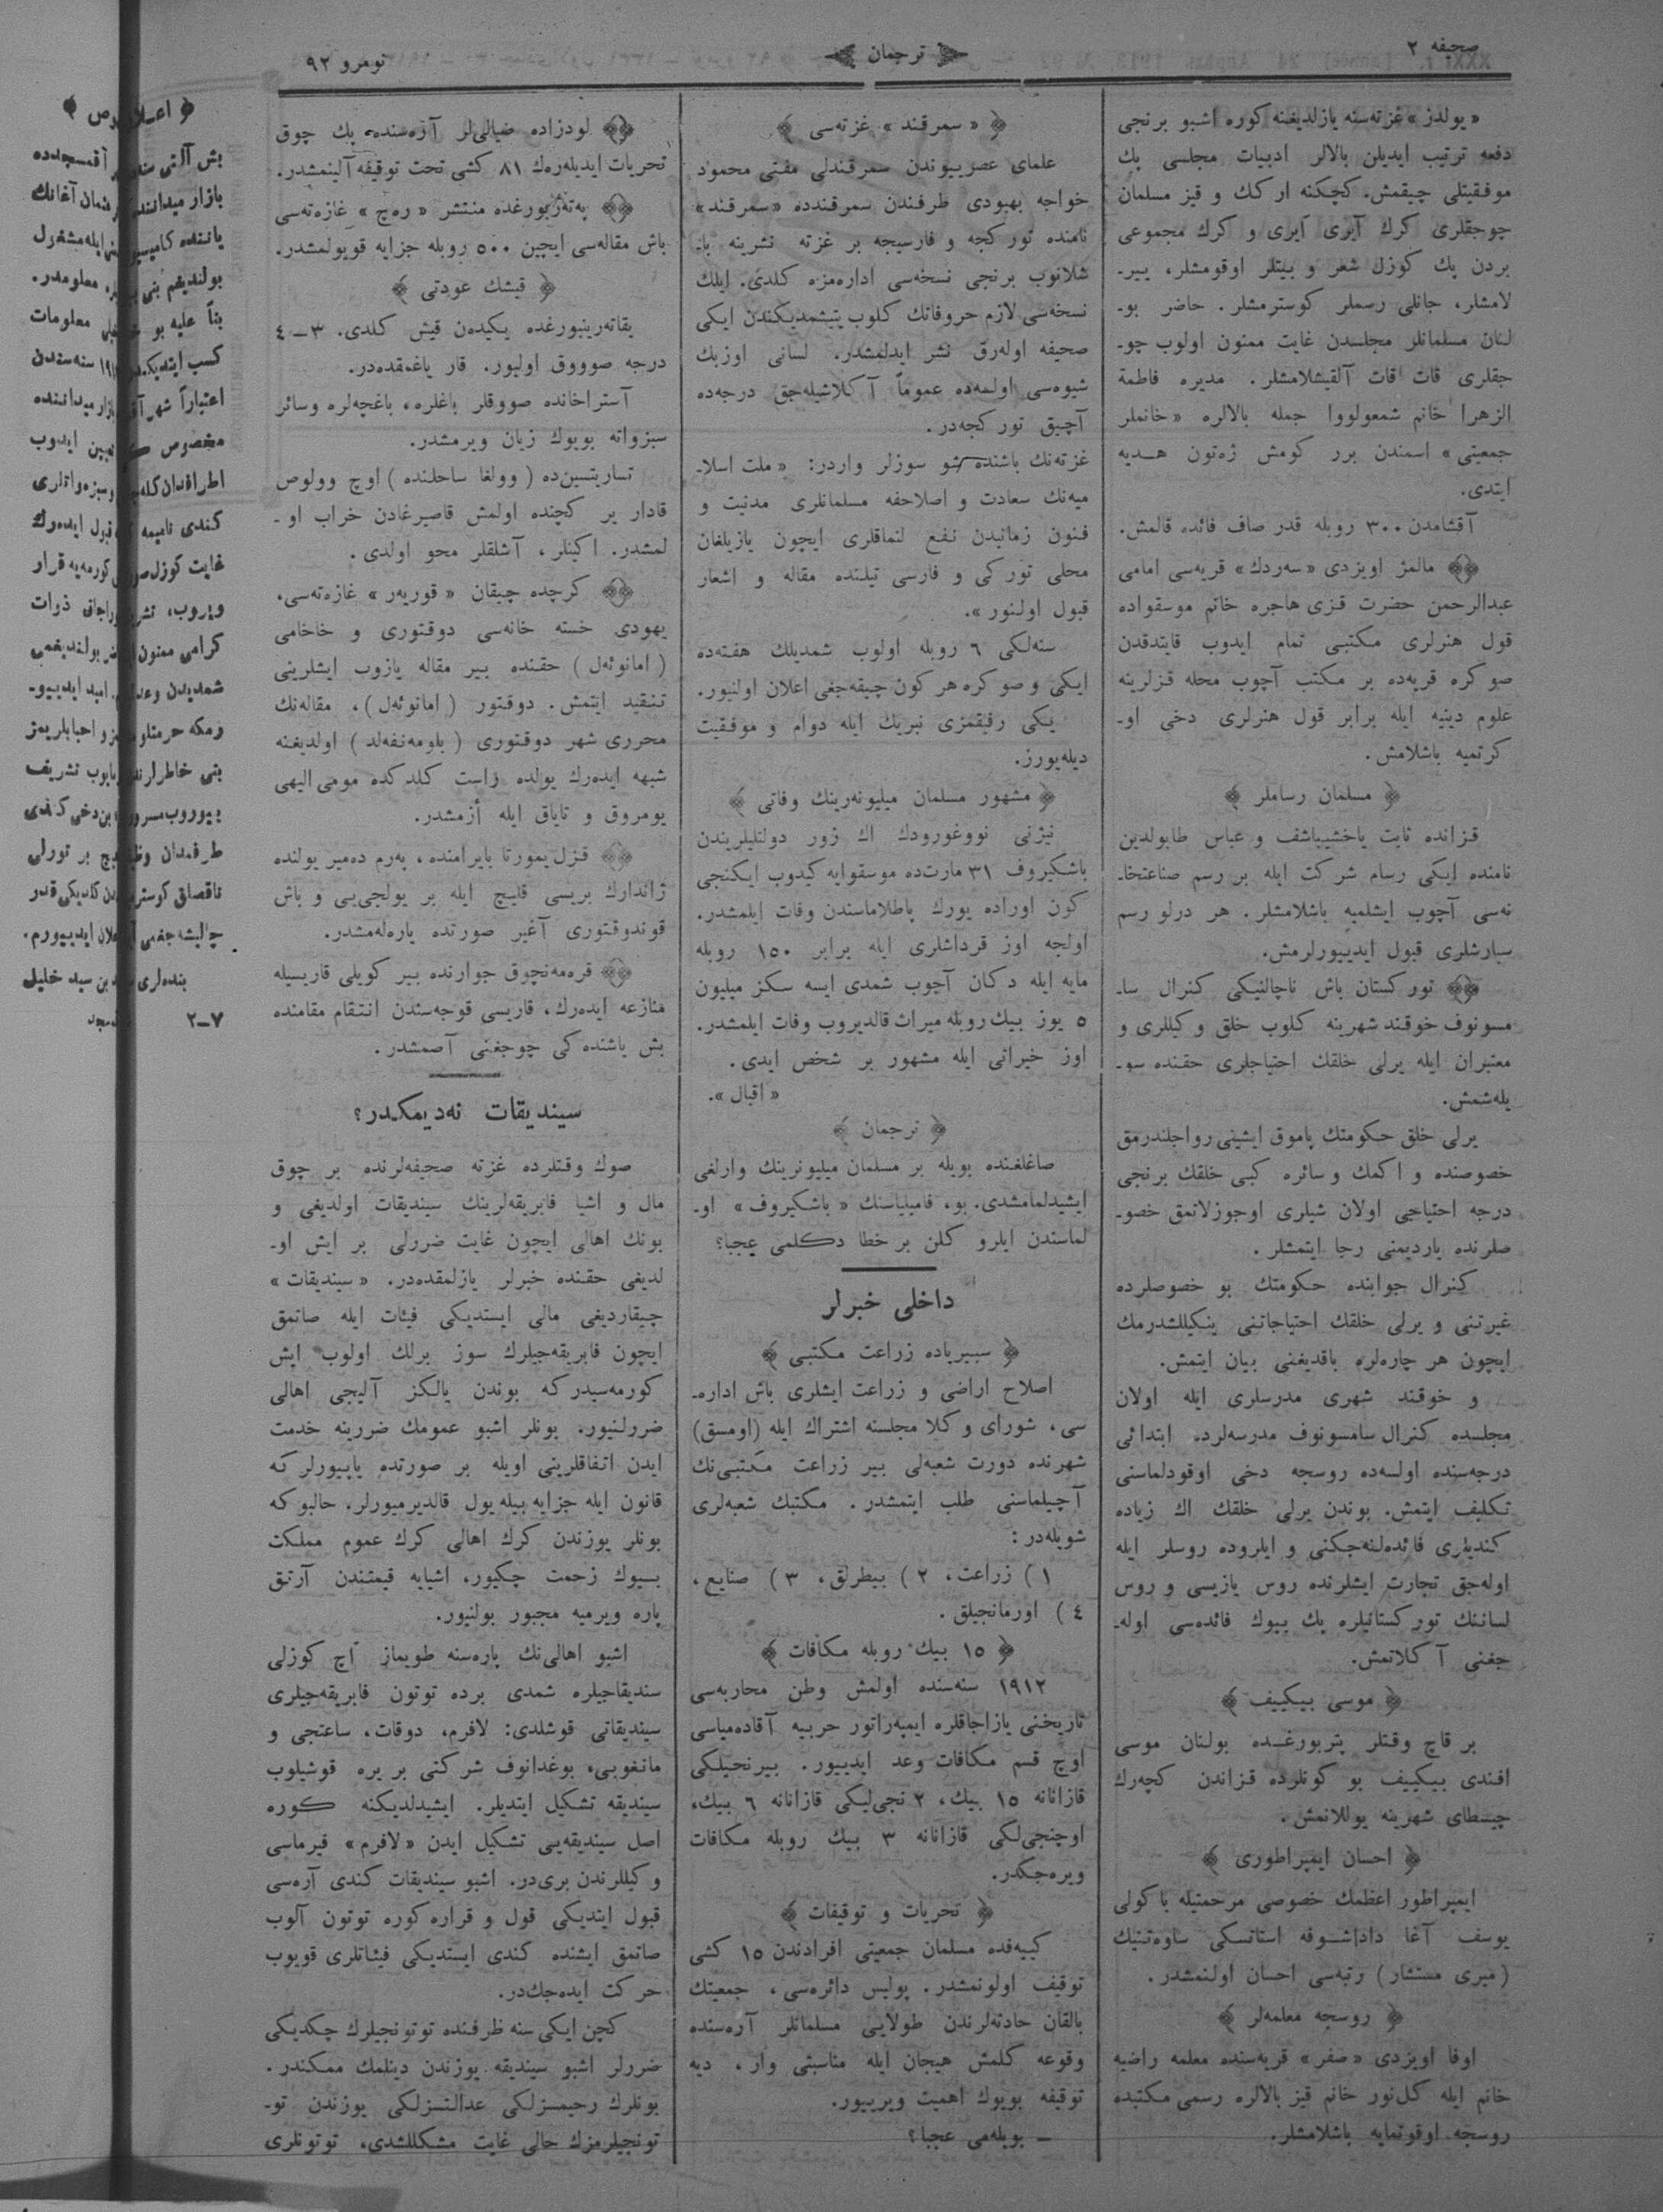 صحیفه ٢
ترجمان
نومرو ٩٢
«یولدز» غزته‌سنه یازلدیغنه کوره اشبو برنجی
دفعه ترتیب ایدیلن بالالر ادبیات مجلسی پك
موفقیتلی چیقمش. کچکنه ارکك و قیز مسلمان
چوجقلری کرك آیری آیری و کرك مجموعی
بردن پك کوزل شعر و بیتلر اوقومشلر، ییر-
لامشلر، جانلی رسملر کوسترمشلر. حاضر بو-
لنان مسلمانلر مجلسدن غایت ممنون اولوب چو-
جقلری قات قات آلقیشلامشلر. مدیره فاطمة
الزهرا خانم شمعولووا جمله بالالره «خانملر
جمعیتی» اسمندن برر کومش ژه‌تون هدیه
ایتدی.
آقشامدن ٣٠٠ روبله قدر صاف فائده قالمش.
مالمژ اویزدی «سه‌ردك» قریه‌سی امامی
عبدالرحمن حضرت قزی هاجره خانم موسقواده
قول هنرلری مکتبی تمام ایدوب قایتدقدن
صوکره قریه‌ده بر مکتب آچوب محله قزلرینه
علوم دینیه ایله برابر قول هنرلری دخی او-
کرتمیه باشلامش.
﴿ مسلمان رساملر ﴾
قزانده ثابت یاخشیباشف و عباس طابولدین
نامنده ایکی رسام شرکت ایله بر رسم صناعتخا-
نه‌سی آچوب ایشلمیه باشلامشلر. هر درلو رسم
سپارشلری قبول ایدییورلرمش.
تورکستان باش ناچالنیکی کنرال سا-
مسونوف خوقند شهرینه کلوب خلق وکیللری و
معتبران ایله یرلی خلقك احتیاجلری حقنده سو-
یله‌شمش.
یرلی خلق حکومتك پاموق ایشینی رواجلندرمق
خصوصنده و اکمك وسائره کبی خلقك برنجی
درجه احتیاجی اولان شیلری اوجوزلاتمق خصو-
صلرنده یاردیمنی رجا ایتمشلر.
کنرال جوابنده حکومتك بو خصوصلرده
غیرتنی و یرلی خلقك احتیاجاتنی ینکیللشدرمك
ایچون هر چاره‌لره باقدیغنی بیان ایتمش.
و خوقند شهری مدرسلری ایله اولان
مجلسده کنرال سامسونوف مدرسه‌لرده ابتدائی
درجه‌سنده اولسه‌ده روسجه دخی اوقودلماسنی
تکلیف ایتمش. بوندن یرلی خلقك اك زیاده
کندیلری فائده‌لنه‌جکنی و ایلروده روسلر ایله
اوله‌جق تجارت ایشلرنده روس یازیسی و روس
لساننك تورکستانیلره پك بیوك فائده‌سی اوله-
جغنی آکلاتمش.
﴿ موسی بیکییف ﴾
بر قاچ وقتلر پتربورغده بولنان موسی
افندی بیکییف بو کونلرده قزاندن کچه‌رك
چیسطای شهرینه یوللانمش.
﴿ احسان ایمپراطوری ﴾
ایمپراطور اعظمك خصوصی مرحمتیله باکولی
یوسف آغا داداشوفه استاتسکی ساوه‌تنیك
(میری مستشار) رتبه‌سی احسان اولنمشدر.
﴿ روسجه معلمه‌لر ﴾
اوفا اویزدی «صفر» قریه‌سنده معلمه راضیه
خانم ایله کل‌نور خانم قیز بالالره رسمی مکتبده
روسجه اوقوتمایه باشلامشلر.
﴿ «سمرقند» غزته‌سی ﴾
علمای عصرییوندن سمرقندلی مفتی محمود
خواجه بهبودی طرفندن سمرقندده «سمرقند»
نامنده تورکجه و فارسیجه بر غزته نشرینه با-
شلانوب برنجی نسخه‌سی اداره‌مزه کلدی. ایلك
نسخه‌سی لازم حروفاتك کلوب یتیشمدیکندن ایکی
صحیفه اوله‌رق نشر ایدلمشدر. لسانی اوزبك
شیوه‌سی اولمه‌ده عموماً آکلاشیله‌جق درجه‌ده
آچیق تورکجه‌در.
غزته‌نك باشنده شو سوزلر واردر: «ملت اسلا-
میه‌نك سعادت و اصلاحفه مسلمانلری مدنیت و
فنون زمانیدن نفع لنماقلری ایچون یازیلغان
محلی تورکی و فارسی تیلنده مقاله و اشعار
قبول اولنور».
سنه‌لکی ٦ روبله اولوب شمدیلك هفته‌ده
ایکی و صوکره هر کون چیقه‌جغی اعلان اولنیور.
یکی رفیقمزی تبریك ایله دوام و موفقیت
دیله‌یورز.
﴿ مشهور مسلمان میلیونه‌رینك وفاتی ﴾
نیژنی نووغورودك اك زور دولتلیلریندن
باشکیروف ٣١ مارت‌ده موسقوایه کیدوب ایکنجی
کون اوراده یورك پاطلاماسندن وفات ایلمشدر.
اولجه اوز قرداشلری ایله برابر ١٥٠ روبله
مایه ایله دکان آچوب شمدی ایسه سکز میلیون
٥ یوز بیك روبله میراث قالدیروب وفات ایلمشدر.
اوز خیراتی ایله مشهور بر شخص ایدی.
«اقبال».
﴿ ترجمان ﴾
صاغلغنده بویله بر مسلمان میلیونرینك وارلغی
ایشیدلمامشدی. بو، فامیلیاسنك «باشکیروف» او-
لماسندن ایلرو کلن بر خطا دکلمی عجبا؟
داخلی خبرلر
﴿ سیبیریاده زراعت مکتبی ﴾
اصلاح اراضی و زراعت ایشلری باش اداره-
سی، شورای وکلا مجلسنه اشتراك ایله (اومسق)
شهرنده دورت شعبه‌لی بیر زراعت مکتبی‌نك
آچیلماسنی طلب ایتمشدر. مکتبك شعبه‌لری
شویله‌در:
١) زراعت، ٢) بیطرلق، ٣) صنایع،
٤) اورمانجیلق.
﴿ ١٥ بیك روبله مکافات ﴾
١٩١٢ سنه‌سنده اولمش وطن محاربه‌سی
تاریخنی یازاجاقلره ایمپه‌راتور حربیه آقاده‌میاسی
اوچ قسم مکافات وعد ایدییور. بیرنجیلکی
قازانانه ١٥ بیك، ٢ نجی‌لیکی قازانانه ٦ بیك،
اوچنجی‌لکی قازانانه ٣ بیك روبله مکافات
ویره‌جکدر.
﴿ تحریات و توقیفات ﴾
کییه‌فده مسلمان جمعیتی افرادندن ١٥ کشی
توقیف اولونمشدر. پولیس دائره‌سی، جمعیتك
بالقان حادثه‌لرندن طولایی مسلمانلر آره‌سنده
وقوعه کلمش هیجان ایله مناسبتی وار، دیه
توقیفه بویوك اهمیت ویرییور.
— بویله‌می عجبا؟
لودزاده ضیالی‌لر آره‌سنده پك چوق
تحریات ایدیله‌ره‌ك ٨١ کشی تحت توقیفه آلینمشدر.
په‌ته‌ربورغده منتشر «ره‌چ» غازه‌ته‌سی
باش مقاله‌سی ایچین ٥٠٠ روبله جزایه قویولمشدر.
﴿ قیشك عودتی ﴾
یقاته‌رینبورغده یکیدن قیش کلدی. ٣—٤
درجه صوووق اولیور. قار یاغمقده‌در.
آستراخانده صووقلر باغلره، باغچه‌لره وسائر
سبزواته بویوك زیان ویرمشدر.
تساریتسین‌ده (وولغا ساحلنده) اوچ وولوص
قادار یر کچنده اولمش قاصیرغادن خراب او-
لمشدر. اکینلر، آشلقلر محو اولدی.
کرچده چیقان «قوریه‌ر» غازه‌ته‌سی،
یهودی خسته خانه‌سی دوقتوری و خاخامی
(امانوئه‌ل) حقنده بیر مقاله یازوب ایشلرینی
تنقید ایتمش. دوقتور (امانوئه‌ل)، مقاله‌نك
محرری شهر دوقتوری (بلومه‌نفه‌لد) اولدیغنه
شبهه ایده‌رك یولده راست کلدکده مومی الیهی
یومروق و تایاق ایله أزمشدر.
قزل‌یمورتا بایرامنده، په‌رم ده‌میر یولنده
ژاندارك بریسی قلیچ ایله بر یولجی‌یی و باش
قوندوقتوری آغیر صورتده یاره‌له‌مشدر.
قره‌مه‌نچوق جوارنده بیر کویلی قاریسیله
منازعه ایده‌رك، قاریسی قوجه‌سندن انتقام مقامنده
بش یاشنده‌کی چوجغنی آصمشدر.
سیندیقات نه‌دیمکدر؟
صوك وقتلرده غزته صحیفه‌لرنده بر چوق
مال و اشیا فابریقه‌لرینك سیندیقات اولدیغی و
بونك اهالی ایچون غایت ضررلی بر ایش او-
لدیغی حقنده خبرلر یازلمقده‌در. «سیندیقات»
چیقاردیغی مالی ایستدیکی فیئات ایله صاتمق
ایچون فابریقه‌جیلرك سوز برلك اولوب ایش
کورمه‌سیدر که بوندن یالکز آلیجی اهالی
ضررلنیور. بونلر اشبو عمومك ضررینه خدمت
ایدن اتفاقلرینی اویله بر صورتده یاپیورلر که
قانون ایله جزایه بیله یول قالدیرمیورلر، حالبوکه
بونلر یوزندن کرك اهالی کرك عموم مملکت
بیوك زحمت چکیور، اشیایه قیمتندن آرتق
پاره ویرمیه مجبور بولنیور.
اشبو اهالی‌نك پاره‌سنه طویماز آچ کوزلی
سندیقاجیلره شمدی برده توتون فابریقه‌جیلری
سیندیقاتی قوشلدی: لافرم، دوقات، ساعتجی و
مانغوبی، بوغدانوف شرکتی بر یره قوشیلوب
سیندیقه تشکیل ایتدیلر. ایشیدلدیکنه کوره
اصل سیندیقه‌یی تشکیل ایدن «لافرم» فیرماسی
وکیللرندن بری‌در. اشبو سیندیقات کندی آره‌سی
قبول ایتدیکی قول و قراره کوره توتون آلوب
صاتمق ایشنده کندی ایستدیکی فیئاتلری قویوب
حرکت ایده‌جك‌در.
کچن ایکی سنه ظرفنده توتونجیلرك چکدیکی
ضررلر اشبو سیندیقه یوزندن دینلمك ممکندر.
بونلرك رحیمسزلکی عدالتسزلکی یوزندن تو-
تونجیلرمزك حالی غایت مشکللشدی، توتونلری
بش آلتی
آقمسجدده
بازار
آغانك
یاننده
ایله مشغول
معلومدر.
بناً علیه بو
معلومات
سنه‌سندن
اعتباراً شهر
بازار میداننده
مخصوص
ایدوب
اطرافدان
وسبزه‌واتلری
کندی
قبول ایده‌رك
غایت کوزل
کورمه‌یه قرار
ویروب،
ذوات
کرامی ممنون
بولندیغمی
شمدیدن
امید ایدییو-
و احبابلریمز
تشریف
دخی کندی
طرفمدان
بر تورلی
کلدیکی قدر
چالیشه‌جغمی
ایدییورم.
بنده‌لری
بن سید خلیل
٧—٢